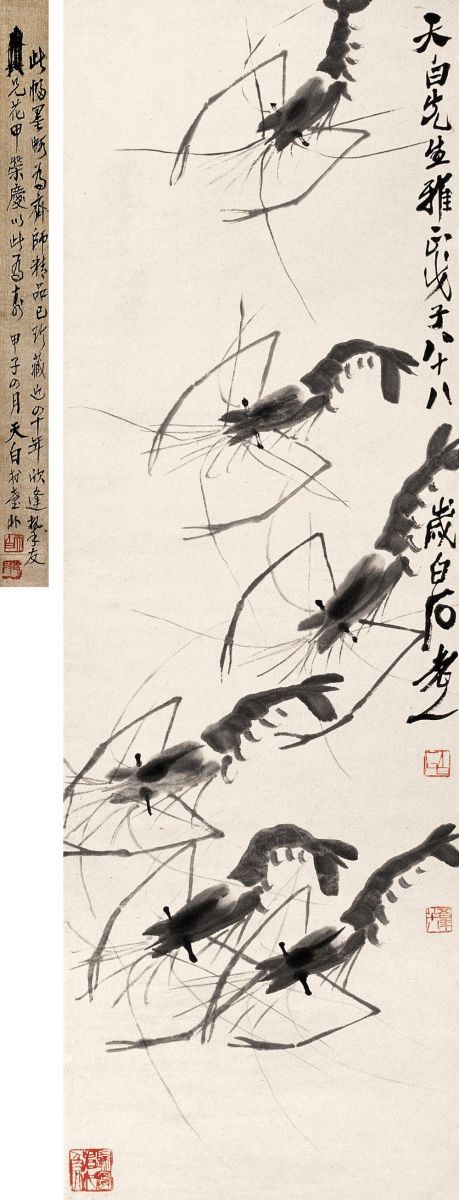 天白先生雅正戊子八十八歲白石老人
此幅墨蝦為齊師精品已珍藏近四十年欣逢友
兄花甲榮慶以此為壽 甲子四月天白於臺北